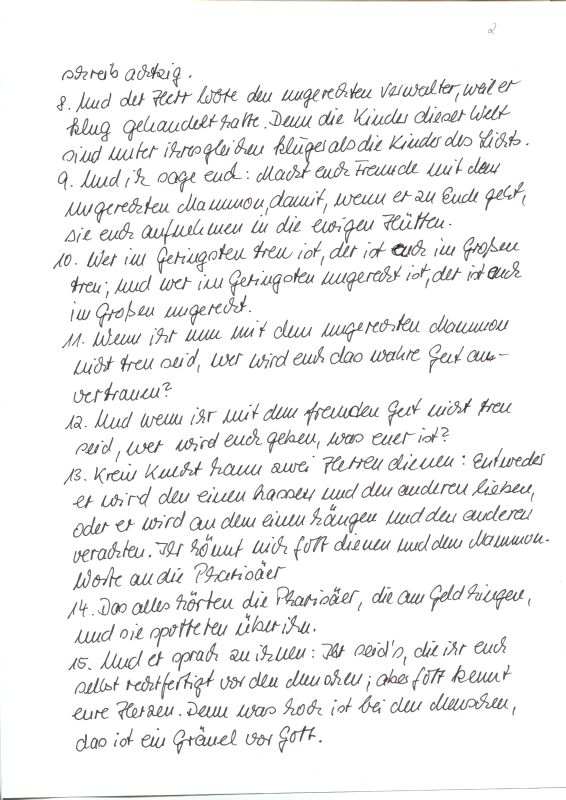 2
schreib achtzig.
8. Und der Herr lobte den ungerechten Verwalter, weil er
klug gehandelt hatte. Denn die Kinder dieser Welt
sind unter ihresgleichen klüger als die Kinder des Lichts.
9. Und ich sage euch: Macht euch Freunde mit dem
ungerechten Mammon, damit, wenn er zu Ende geht,
sie euch aufnehmen in die ewigen Hütten.
10. Wer im Geringsten treu ist, der ist auch im Großen
treu; und wer im Geringsten ungerecht ist, der ist auch
im Großen ungerecht.
11. Wenn ihr nun mit dem ungerechten Mammon
nicht treu seid, wer wird euch das wahre Gut an-
vertrauen?
12. Und wenn ihr mit dem fremden Gut nicht treu
seid, wer wird euch geben, was euer ist?
13. Kein Knecht kann zwei Herren dienen: Entweder
er wird den einen hassen und den anderen lieben,
oder er wird an dem einen hängen und den anderen
verachten. Ihr könnt nich Gott dienen und dem Mammon.
Worte an die Pharisäer
14. Das alles hörten die Pharisäer, die am Geld hingen,
und sie spotteten über ihn.
15. Und er sprach zu ihnen: Ihr seid's, die ihr euch
selbst rechtfertigt vor den Menschen; aber Gott kennt
eure Herzen. Denn was hoch ist bei den Menschen,
das ist ein Gräuel vor Gott.